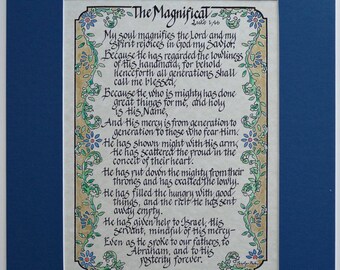 The Magnificat
Luke 1:46
My soul magnifies the Lord and my
Spirit rejoices in God my Savior,
Because he has regarded the lowliness
of His handmaid, for behold
henceforth all generations shall
call me blessed;
Because he who is mighty has done
great things for me, and holy
is His Name,
And His mercy is from generation to
generation to those who fear Him.
He has shown might with His arm,
He has scattered the proud in the
conceit of their heart.
He has put down the mighty from their
thrones and has exalted the lowly.
He has filled the hungry with good
things, and the rich He has sent
away empty.
He has given help to Israel, His
servant, mindful of His mercy~
Even as he spoke to our fathers, to
Abraham, and to His
posterity forever.